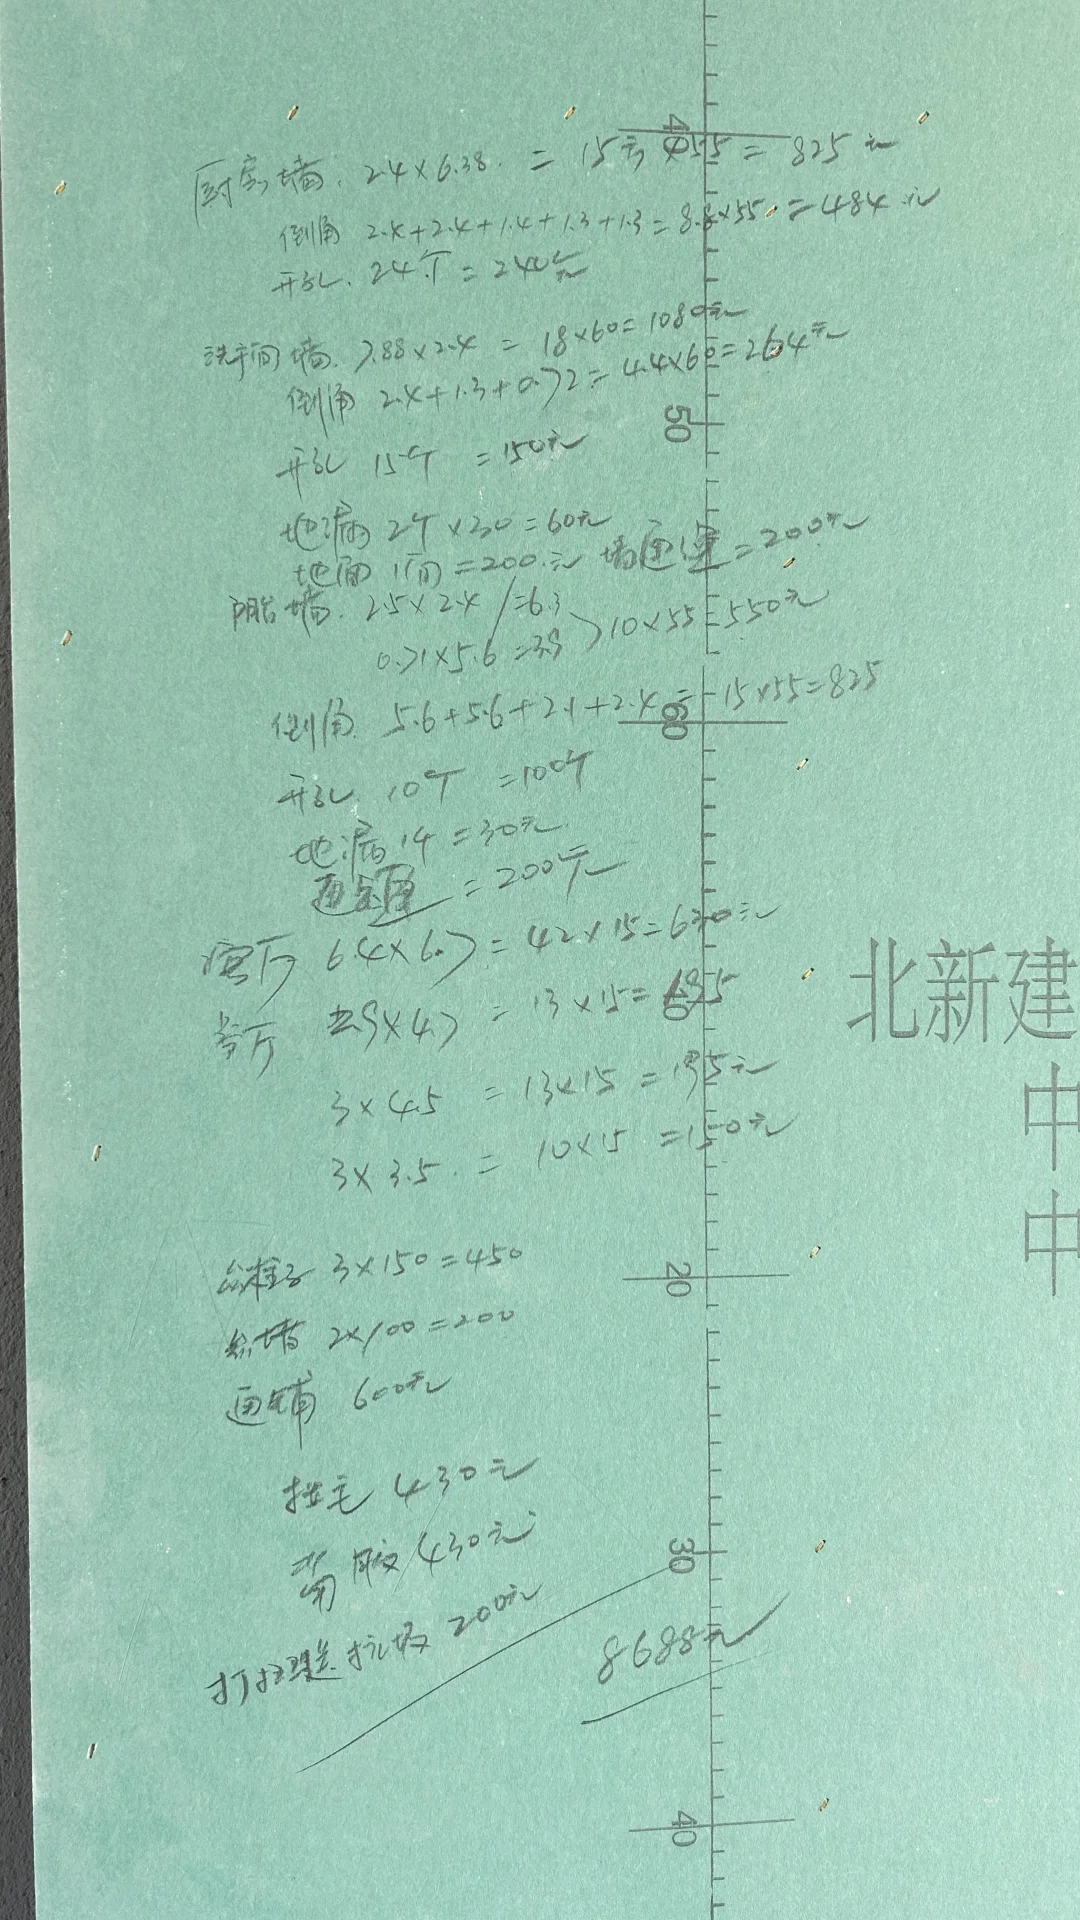 厨房墙. 2.4×6.38. = 15方×55 = 825元
倒角 2.4+2.4+1.4+1.3+1.3=8.8×55=484元
开孔. 24个=240元
洗手间墙. 7.88×2.4 = 18×60=1080元
倒角 2.4+1.3+0.72=4.4×60=264元
开孔 15个 =150元
地漏 2个×30=60元
地面 1间=200元 墙 =200元
阳台墙. 2.5×2.4 =6.3
0.71×5.6=3.9 10×55=550元
倒角 5.6+5.6+2.1+2.4=15×55=825
开孔 10个 =100个
地漏 1个=30元
=200个
客厅 6.4×6.7=42×15=630元
2.9×4.7 = 13×15=195
3×4.5 = 13×15=195元
3×3.5. = 10×15 =150元
包柱子 3×150=450
墙 2×100=200
面铺 600元
拉毛 430元
背胶 430元
垃圾 200元
8688元
40
50
60
10
20
30
40
北新建
中
中